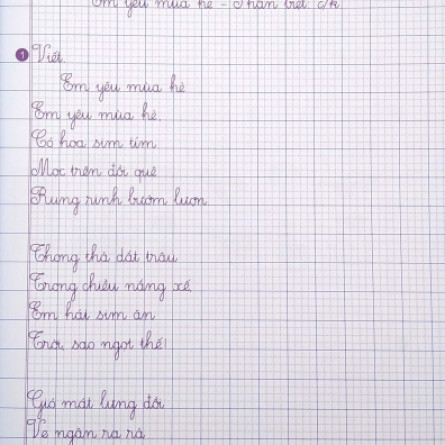 Em yêu mùa hè - Phân biệt c/k
1 Viết.
Em yêu mùa hè
Em yêu mùa hè.
Có hoa sim tím
Mọc trên đồi quê
Rung rinh bướm lượn
Thong thả dắt trâu
Trong chiều nắng xế
Em hái sim ăn
Trời, sao ngọt thế!
Gió mát lưng đồi
Ve ngân ra rả